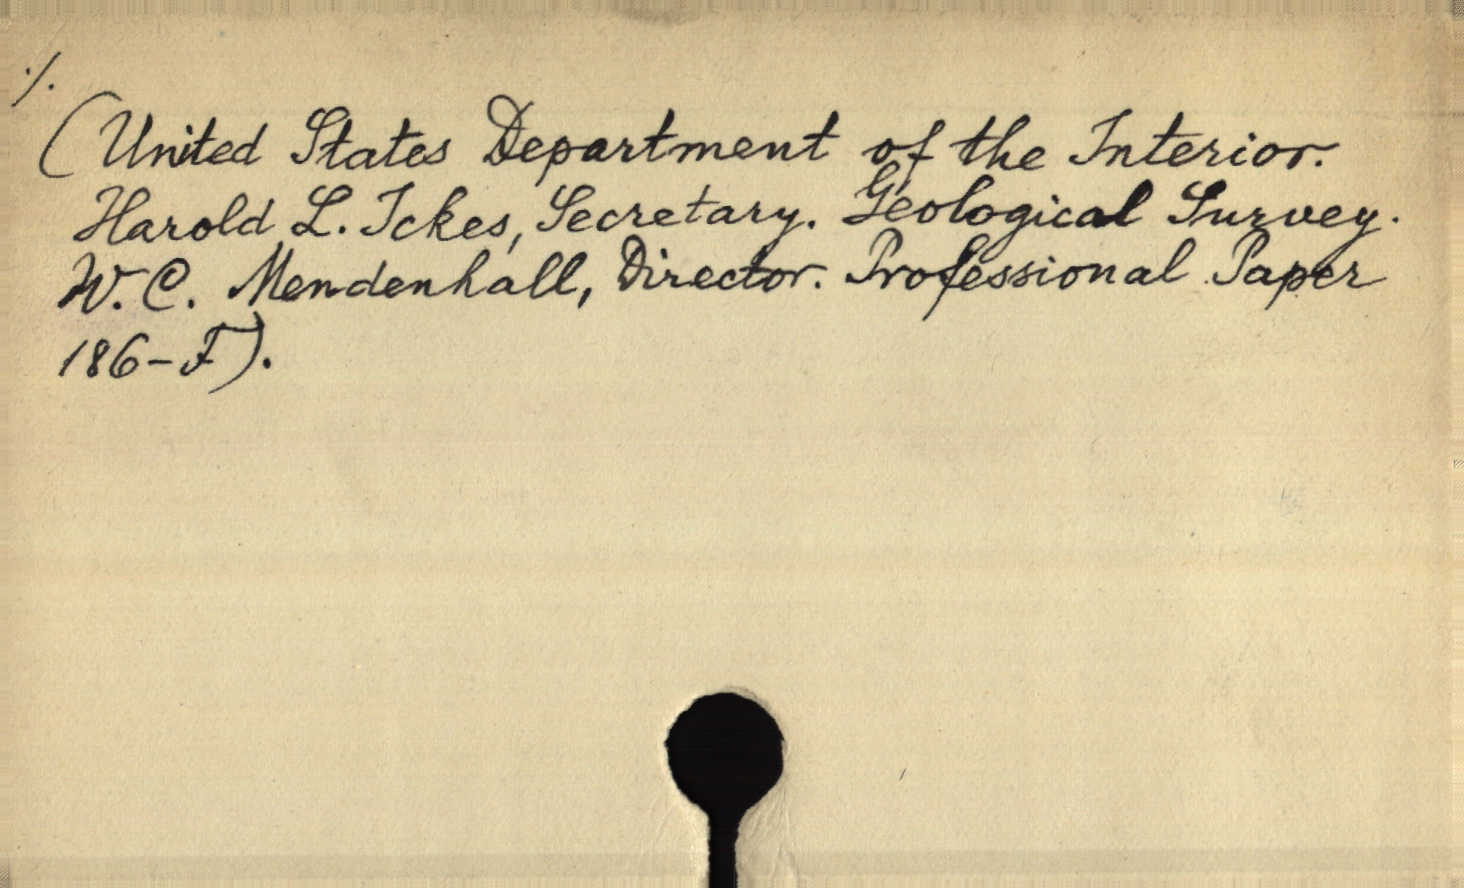 ./.
(United States Department of the Interior.
Harold L. Ickes, Secretary. Geological Survey.
W. C. Mendenhall, Director. Professional Paper
186-F).